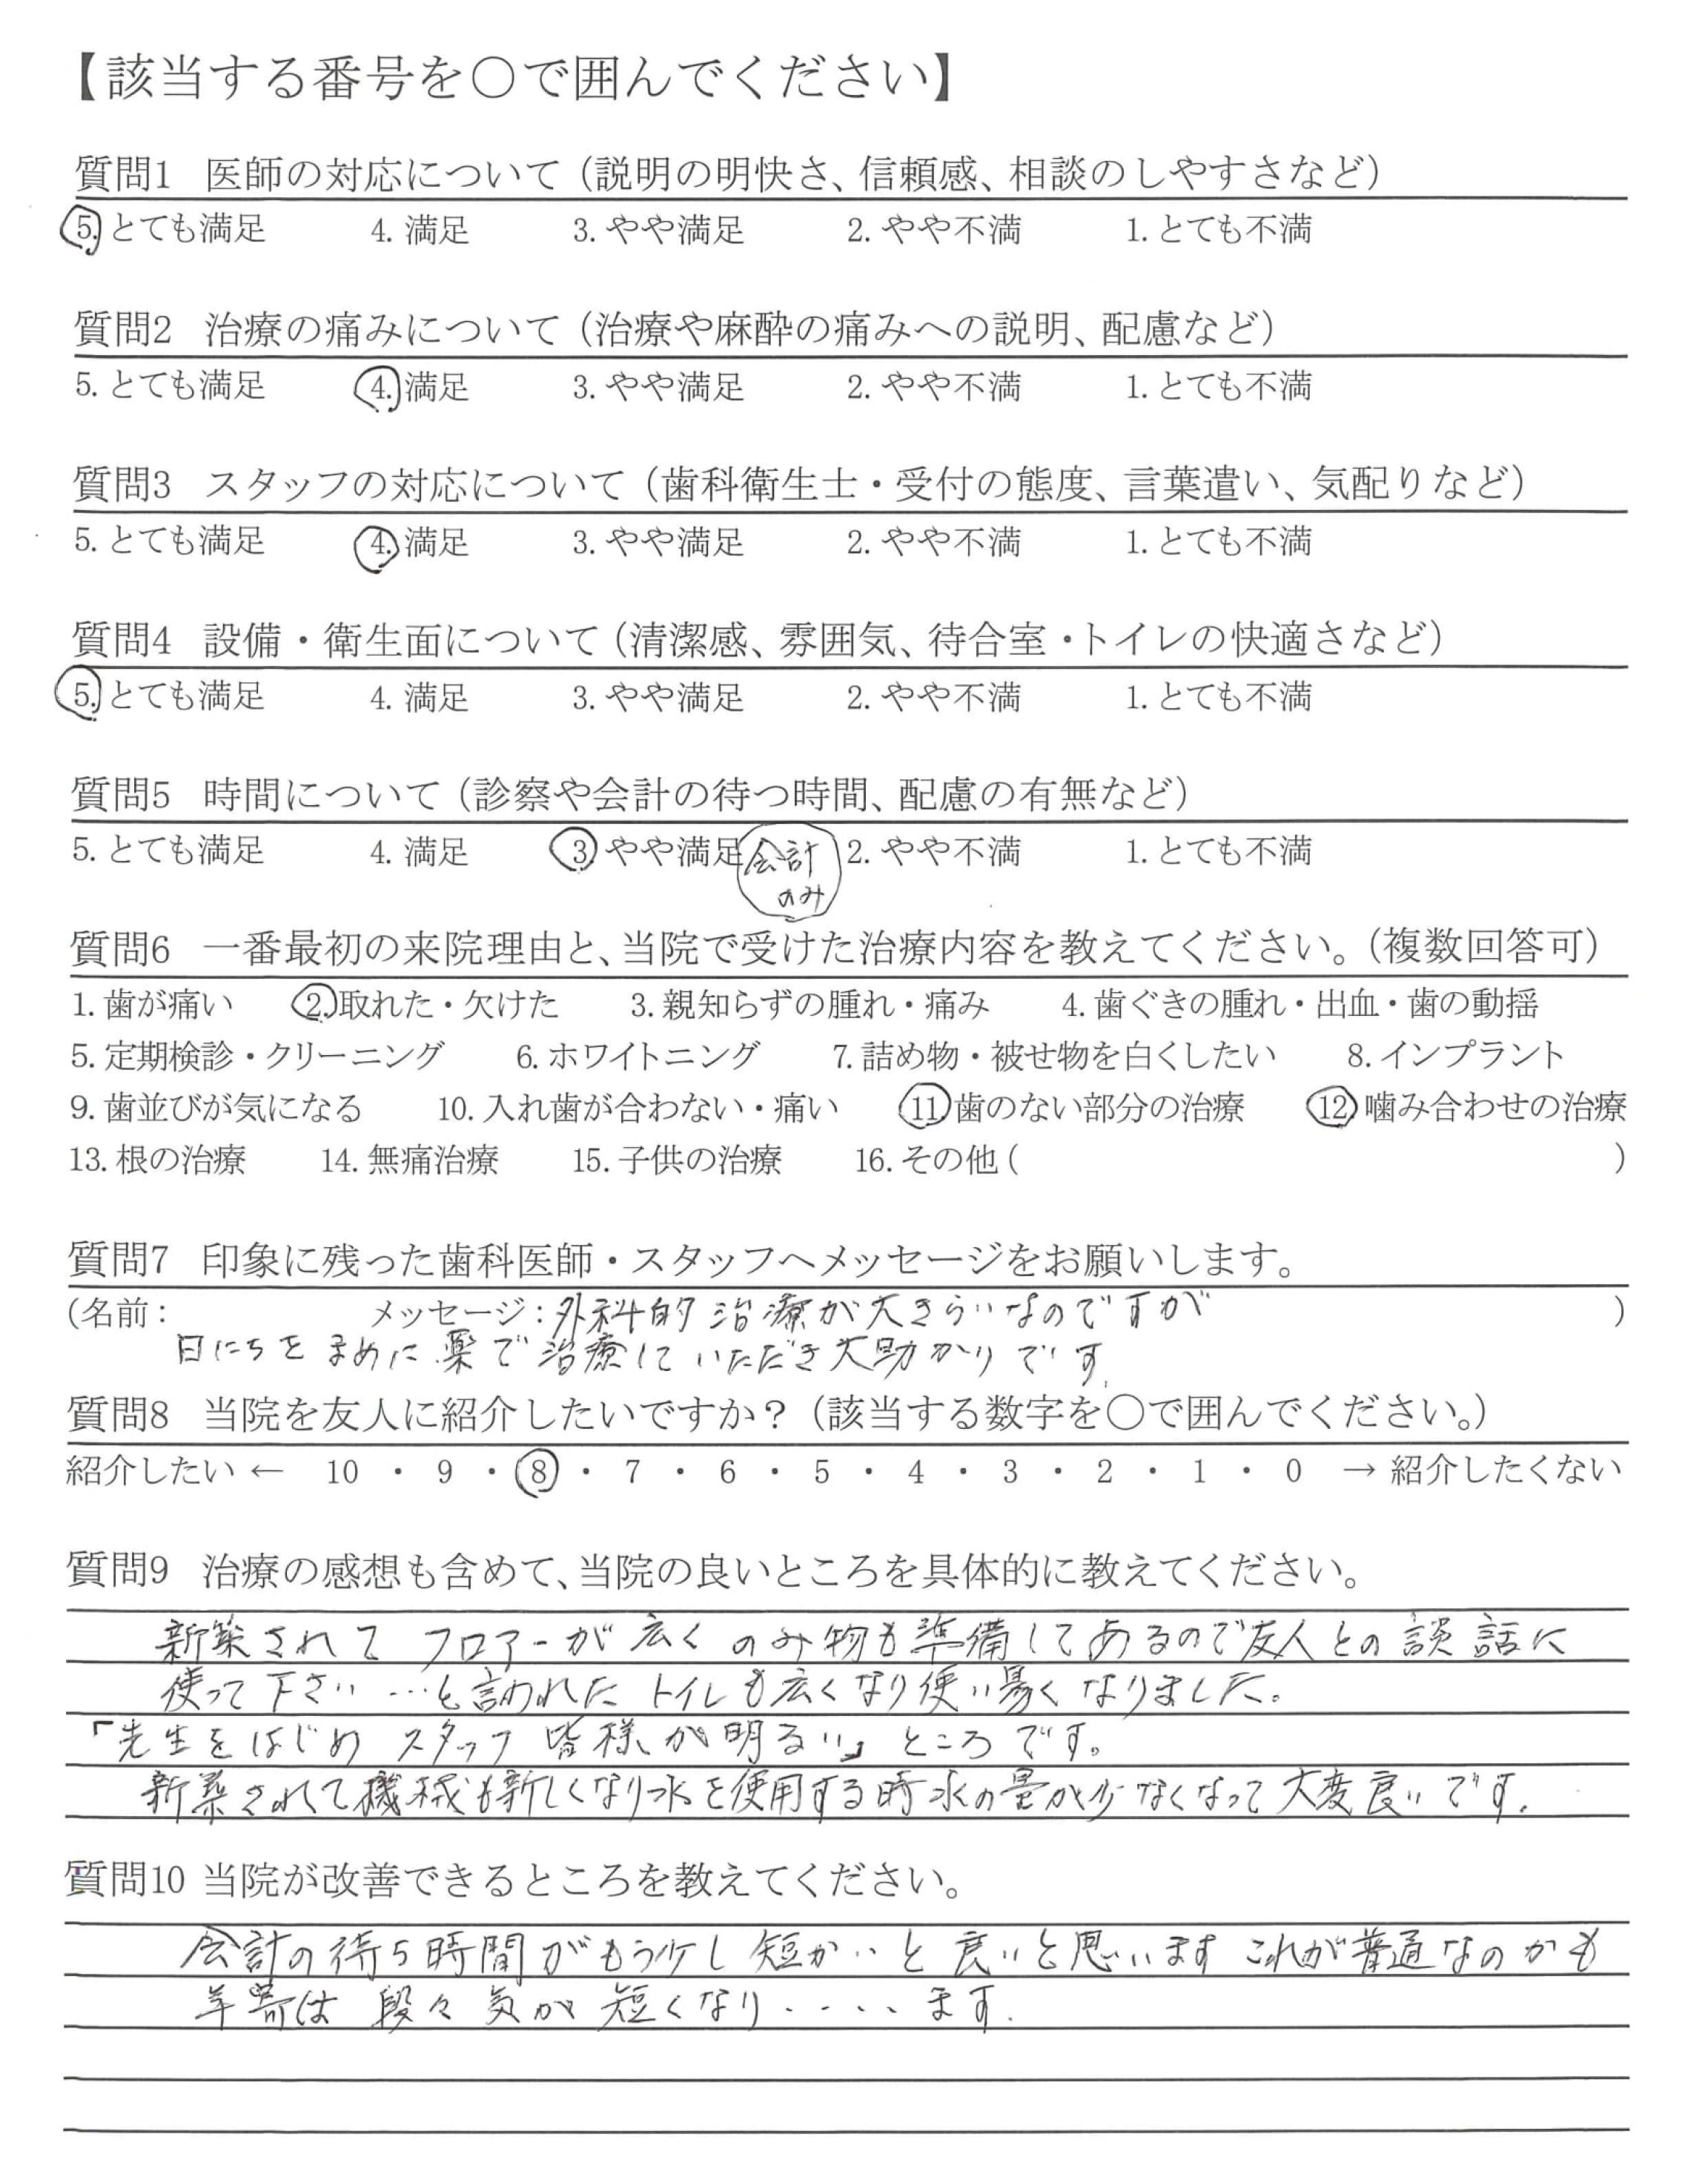 【該当する番号を○で囲んでください】
質問1 医師の対応について（説明の明快さ、信頼感、相談のしやすさなど）
5. とても満足 4. 満足 3. やや満足 2. やや不満 1. とても不満
質問2 治療の痛みについて（治療や麻酔の痛みへの説明、配慮など）
5. とても満足 4. 満足 3. やや満足 2. やや不満 1. とても不満
質問3 スタッフの対応について（歯科衛生士・受付の態度、言葉遣い、気配りなど）
5. とても満足 4. 満足 3. やや満足 2. やや不満 1. とても不満
質問4 設備・衛生面について（清潔感、雰囲気、待合室・トイレの快適さなど）
5. とても満足 4. 満足 3. やや満足 2. やや不満 1. とても不満
質問5 時間について（診察や会計の待つ時間、配慮の有無など）
5. とても満足 4. 満足 3. やや満足 会計 2. やや不満 1. とても不満
のみ
質問6 一番最初の来院理由と、当院で受けた治療内容を教えてください。（複数回答可）
1. 歯が痛い 2. 取れた・欠けた 3. 親知らずの腫れ・痛み 4. 歯ぐきの腫れ・出血・歯の動揺
5. 定期検診・クリーニング 6. ホワイトニング 7. 詰め物・被せ物を白くしたい 8. インプラント
9. 歯並びが気になる 10. 入れ歯が合わない・痛い 11 歯のない部分の治療 12 噛み合わせの治療
13. 根の治療 14. 無痛治療 15. 子供の治療 16. その他（ ）
質問7 印象に残った歯科医師・スタッフへメッセージをお願いします。
（名前： メッセージ：外科的治療が大きらいなのですが ）
日にちをまめに薬で治療していただき大助かりです。
質問8 当院を友人に紹介したいですか？（該当する数字を○で囲んでください。）
紹介したい ← 10 ・ 9 ・ 8 ・ 7 ・ 6 ・ 5 ・ 4 ・ 3 ・ 2 ・ 1 ・ 0 → 紹介したくない
質問9 治療の感想も含めて、当院の良いところを具体的に教えてください。
新築されて フロアーが広く のみ物も準備してあるので友人との談話に
使って下さい…と言われた トイレも広くなり使い易くなりました。
「先生をはじめ スタッフ 皆様が明るい」ところです。
新築されて機械も新しくなり水を使用する時水の量が少なくなって大変良いです。
質問10 当院が改善できるところを教えてください。
会計の待ち時間がもう少し短かいと良いと思います これが普通なのかも
年寄は 段々気が短くなり‥‥ます。